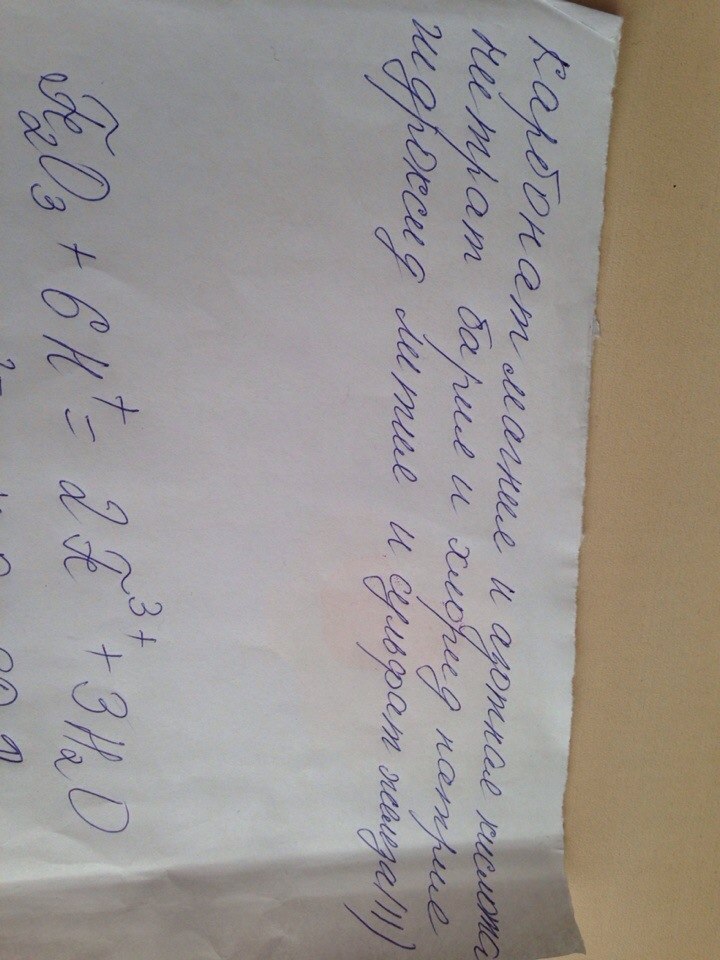 карбонат магния и азотная кислота
нитрат бария и хлорид натрия
гидроксид лития и сульфат железа(II)
Fe₂O₃ + 6H⁺ = 2Fe³⁺ + 3H₂O